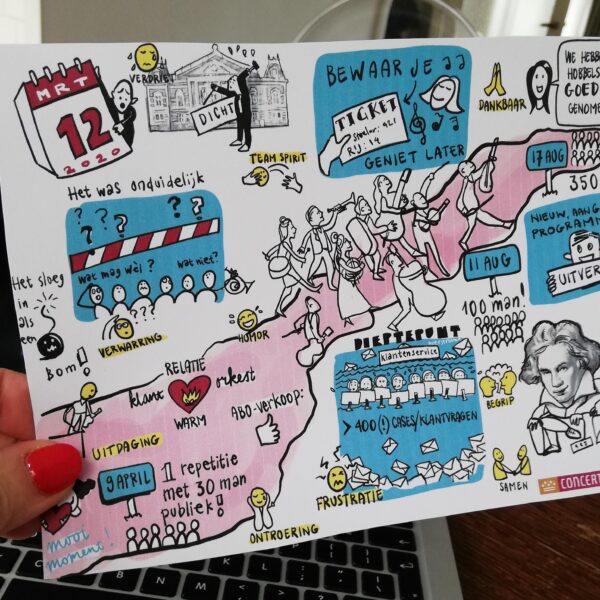 MRT
12
2020
VERDRIET
DICHT
TEAM SPIRIT
BEWAAR JE
TICKET
GENIET LATER
DANKBAAR
WE HEBBE
HOBBELS
GOED
GENOMEN
17 AUG
350
Het was onduidelijk
? ? ? ?
wat mag wèl?
wat niet?
???
Het sloeg
in
als
een
Bom!
VERWARRING
HUMOR
11 AUG
100 man!
NIEUW, AANG
PROGRAMM
UITVERK
RELATIE
klant
orkest
WARM
ABO-VERKOOP:
UITDAGING
9 APRIL
1 repetitie
met 30 man
publiek!
mooi
moment!
ONTROERING
DIEPTEPUNT
klantenservice
> 400 (!) CASES/KLANTVRAGEN
FRUSTRATIE
BEGRIP
SAMEN
CONCERT